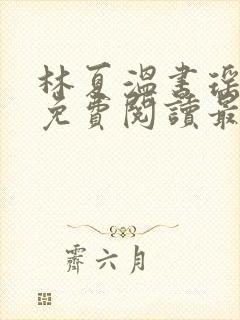 林夏溫書瑤
免費閱讀最
霽六月